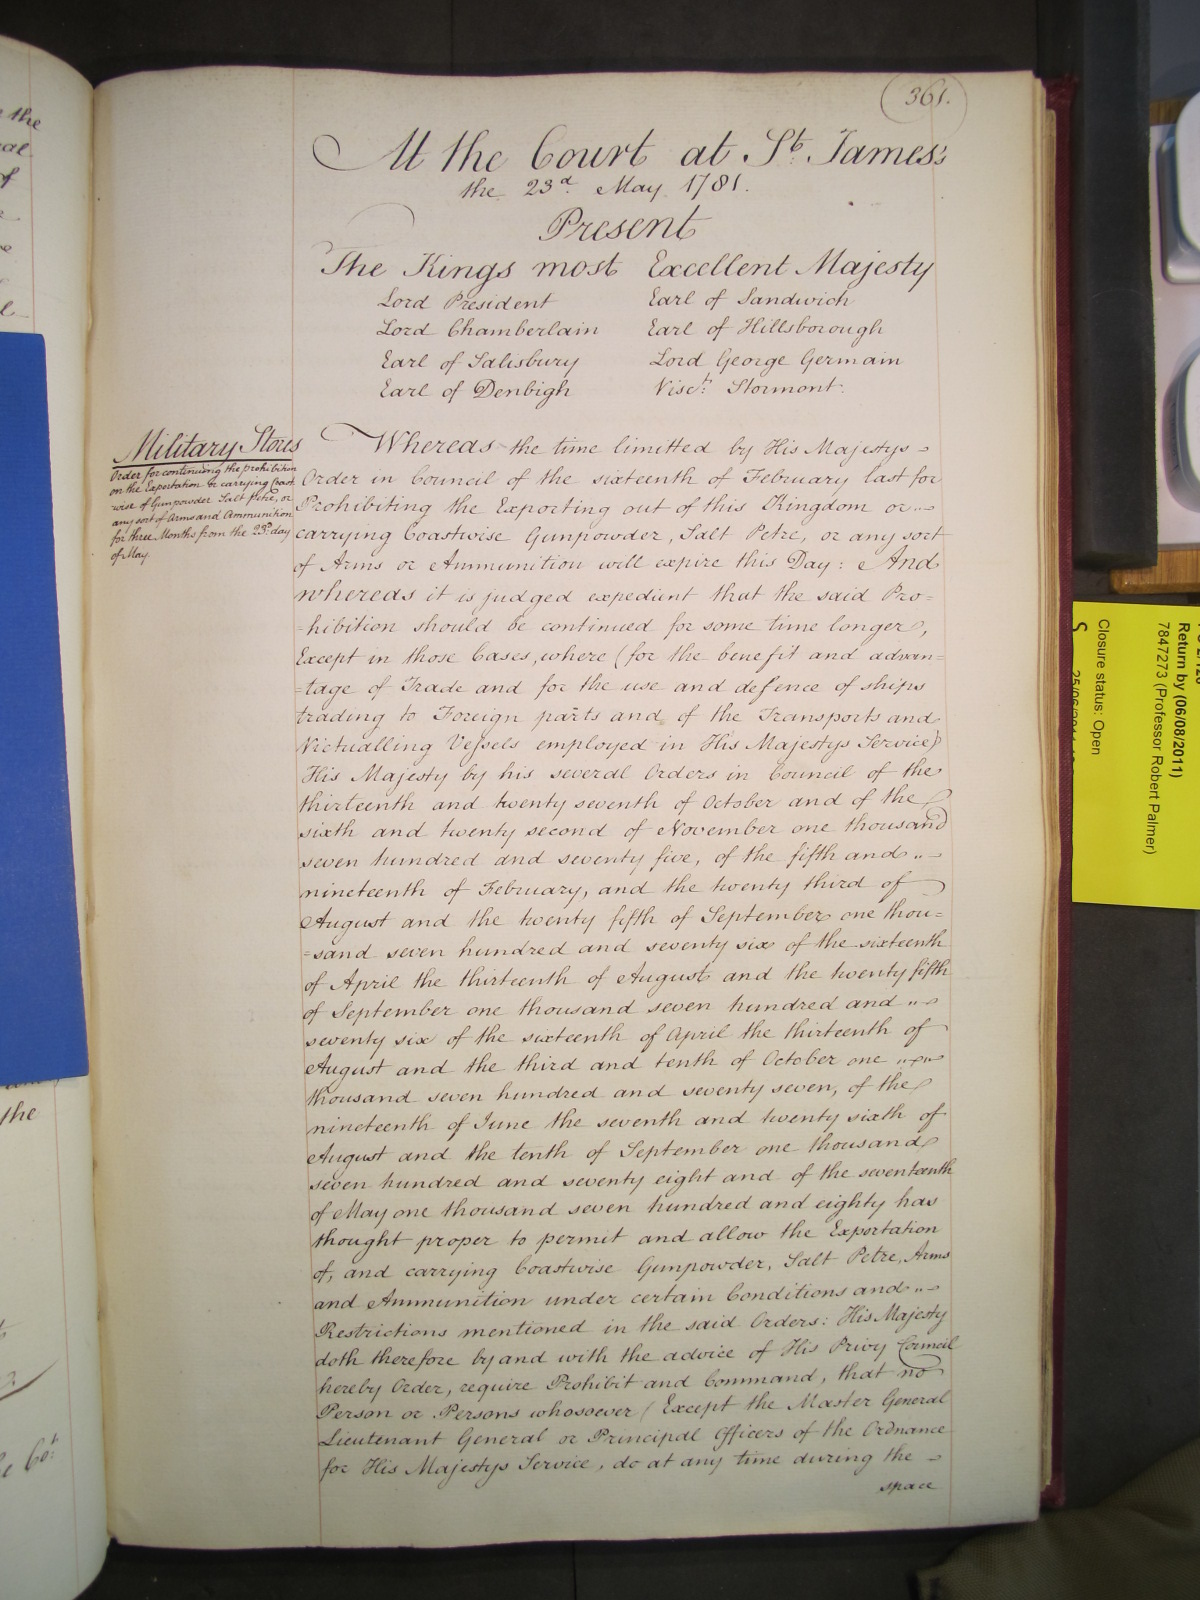 361.
At the Court at St. James's
the 23d. May 1781.
Present
The Kings most Excellent Majesty
Lord President Earl of Sandwich
Lord Chamberlain Earl of Hillsborough
Earl of Salisbury Lord George Germain
Earl of Denbigh Visct. Stormont.
Military Stores
Order for continuing the prohibition
on the Exportation or carrying Coast
wise of Gunpowder Salt petre, or
any sort of Arms and Ammunition
for three Months from the 23d. day
of May.
Whereas the time limitted by His Majestys
Order in Council of the sixteenth of February last for
Prohibiting the Exporting out of this Kingdom or
carrying Coastwise Gunpowder, Salt Petre, or any sort
of Arms or Ammunition will expire this Day: And
whereas it is judged expedient that the said Pro=
=hibition should be continued for some time longer,
Except in those Cases, where (for the benefit and advan=
=tage of Trade and for the use and defence of ships
trading to Foreign parts and of the Transports and
Victualling Vessels employed in His Majestys Service)
His Majesty by his several Orders in Council of the
thirteenth and twenty seventh of October and of the
sixth and twenty second of November one thousand
seven hundred and seventy five, of the fifth and
nineteenth of February, and the twenty third of
August and the twenty fifth of September one thou=
=sand seven hundred and seventy six of the sixteenth
of April the thirteenth of August and the twenty fifth
of September one thousand seven hundred and
seventy six of the sixteenth of April the thirteenth of
August and the third and tenth of October one
thousand seven hundred and seventy seven, of the
nineteenth of June the seventh and twenty sixth of
August and the tenth of September one thousand
seven hundred and seventy eight and of the seventeenth
of May one thousand seven hundred and eighty has
thought proper to permit and allow the Exportation
of, and carrying Coastwise Gunpowder, Salt Petre, Arms
and Ammunition under certain Conditions and
Restrictions mentioned in the said Orders: His Majesty
doth therefore by and with the advice of His Privy Council
hereby Order, require Prohibit and Command, that no
Person or Persons whosoever (Except the Master General
Lieutenant General or Principal Officers of the Ordnance
for His Majestys Service, do at any time during the
space
Return by (06/08/2011)
7847273 (Professor Robert Palmer)
Closure status: Open
the
of
the